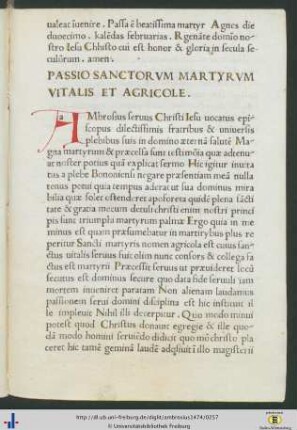 ualeat īuenire. Passa ē beatissima martyr Agnes die
duoecimo. kalēdas februarias. Rgenāte domīo no-
stro Iesu Chhsto cui est honor & gloria in secula se
culōrum. amen.
PASSIO SANCTORVM MARTYRVM
VITALIS ET AGRICOLE.
AMbrosius seruus Christi Iesu uocatus epi-
scopus dilectissimis fratribus & uniuersis
plebibus suis in domino æternā salutē Ma-
gna martyrum & præcelsa sunt testimōia quæ adenu-
at noster potius quā explicat sermo Hic igitur inuita
tus a plebe Bononiensi negare præsentiam meā nulla
tenus potui quia tempus aderat ut sua dominus mira
bilia quæ solet ostenderet aperta quidē plena sācti
tate & gratia mecum detuli christi enim nostri princi
pis sunt triumphi martyrum palmæ Ergo quia in me
minus est quam præsumebatur in martyribus plus re
peritur Sancti martyris nomen agricola est cuius san-
ctus uitalis seruus fuit olim nunc consors & collega fa
ctus est martyrii Præcessit seruus ut præuideret locū
secutus est dominus secure quo data fide serui iam
mortem inueniret paratam Non alienam laudamus
passionem serui domini disciplina est hic instituit il
le impleuit Nihil illi decerpitur. Quo modo minui
potest quod Christus donauit egregie & ille quo-
dā modo homini seruiēdo didicit quo mō christo pla
ceret hic tamē geminā laudē adquisiuit illo magisterii
http://dl.ub.uni-freiburg.de/diglit/ambrosius1474/0257
© Universitätsbibliothek Freiburg